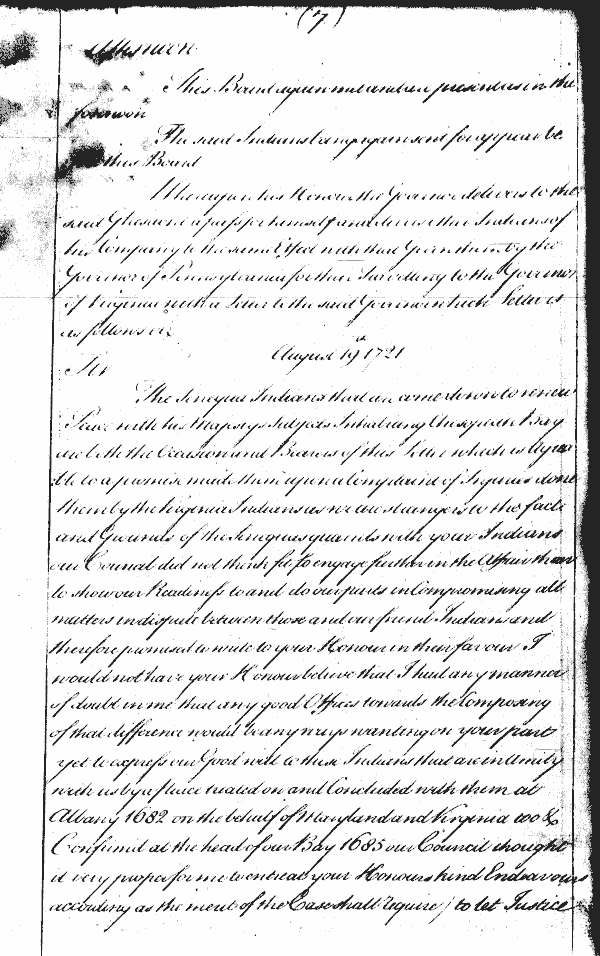 (7)
Afternoon
This Board again met and are present as in the
forenoon
The said Indians being again sent for appear be
this Board
Whereupon his Honour the Governor delivers to the
said Ghesaont a pass for himself and the other Indians of
his Company to the same Effect with that Given them by the
Governor of Pensylvania for their Travelling to the Governor
of Virginia with a Letter to the said Governor which Letter is
as follows viz
August 19th 1721
Sir
The Seneques Indians that are come down to renew
Peace with his Majestys Subjects Inhabiting Chesepeake Bay
are both the Occasion and Bearers of this Letter which is agrea
ble to a promise made them upon a Complaint of Injuries done
them by the Virginia Indians as we are strangers to the facts
and Grounds of the Seneques quarrels with your Indians
our Council did not think fit to engage further in the Affair than
to show our Readiness to and do our parts in Compromising all
matters in dispute between those and our friend Indians and
therefore promised to write to your Honour in their favour I
would not have your Honour believe that I had any manner
of doubt in me that any good Offices towards the Composing
of that difference would be any ways wanting on your part
yet to express our Good will to these Indians that are in Amity
with us by a Peace treated on and Concluded with them at
Albany 1682 on the behalf of Maryland and Virginia too &
Confirmed at the head of our Bay 1685 our Council thought
it very proper for me to entreat your Honours kind Endeavours
according as the merit of the Case shall require) to let Justice